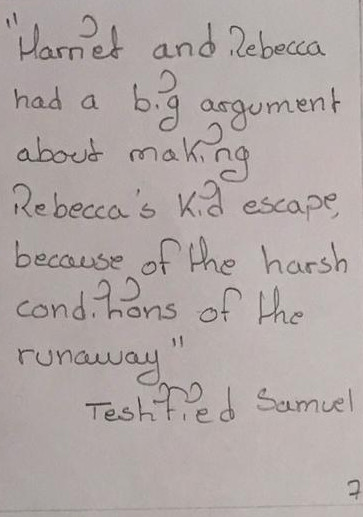 "Harriet and Rebecca
had a big argument
about making
Rebecca's kid escape,
because of the harsh
conditions of the
runaway"
Testified Samuel
7